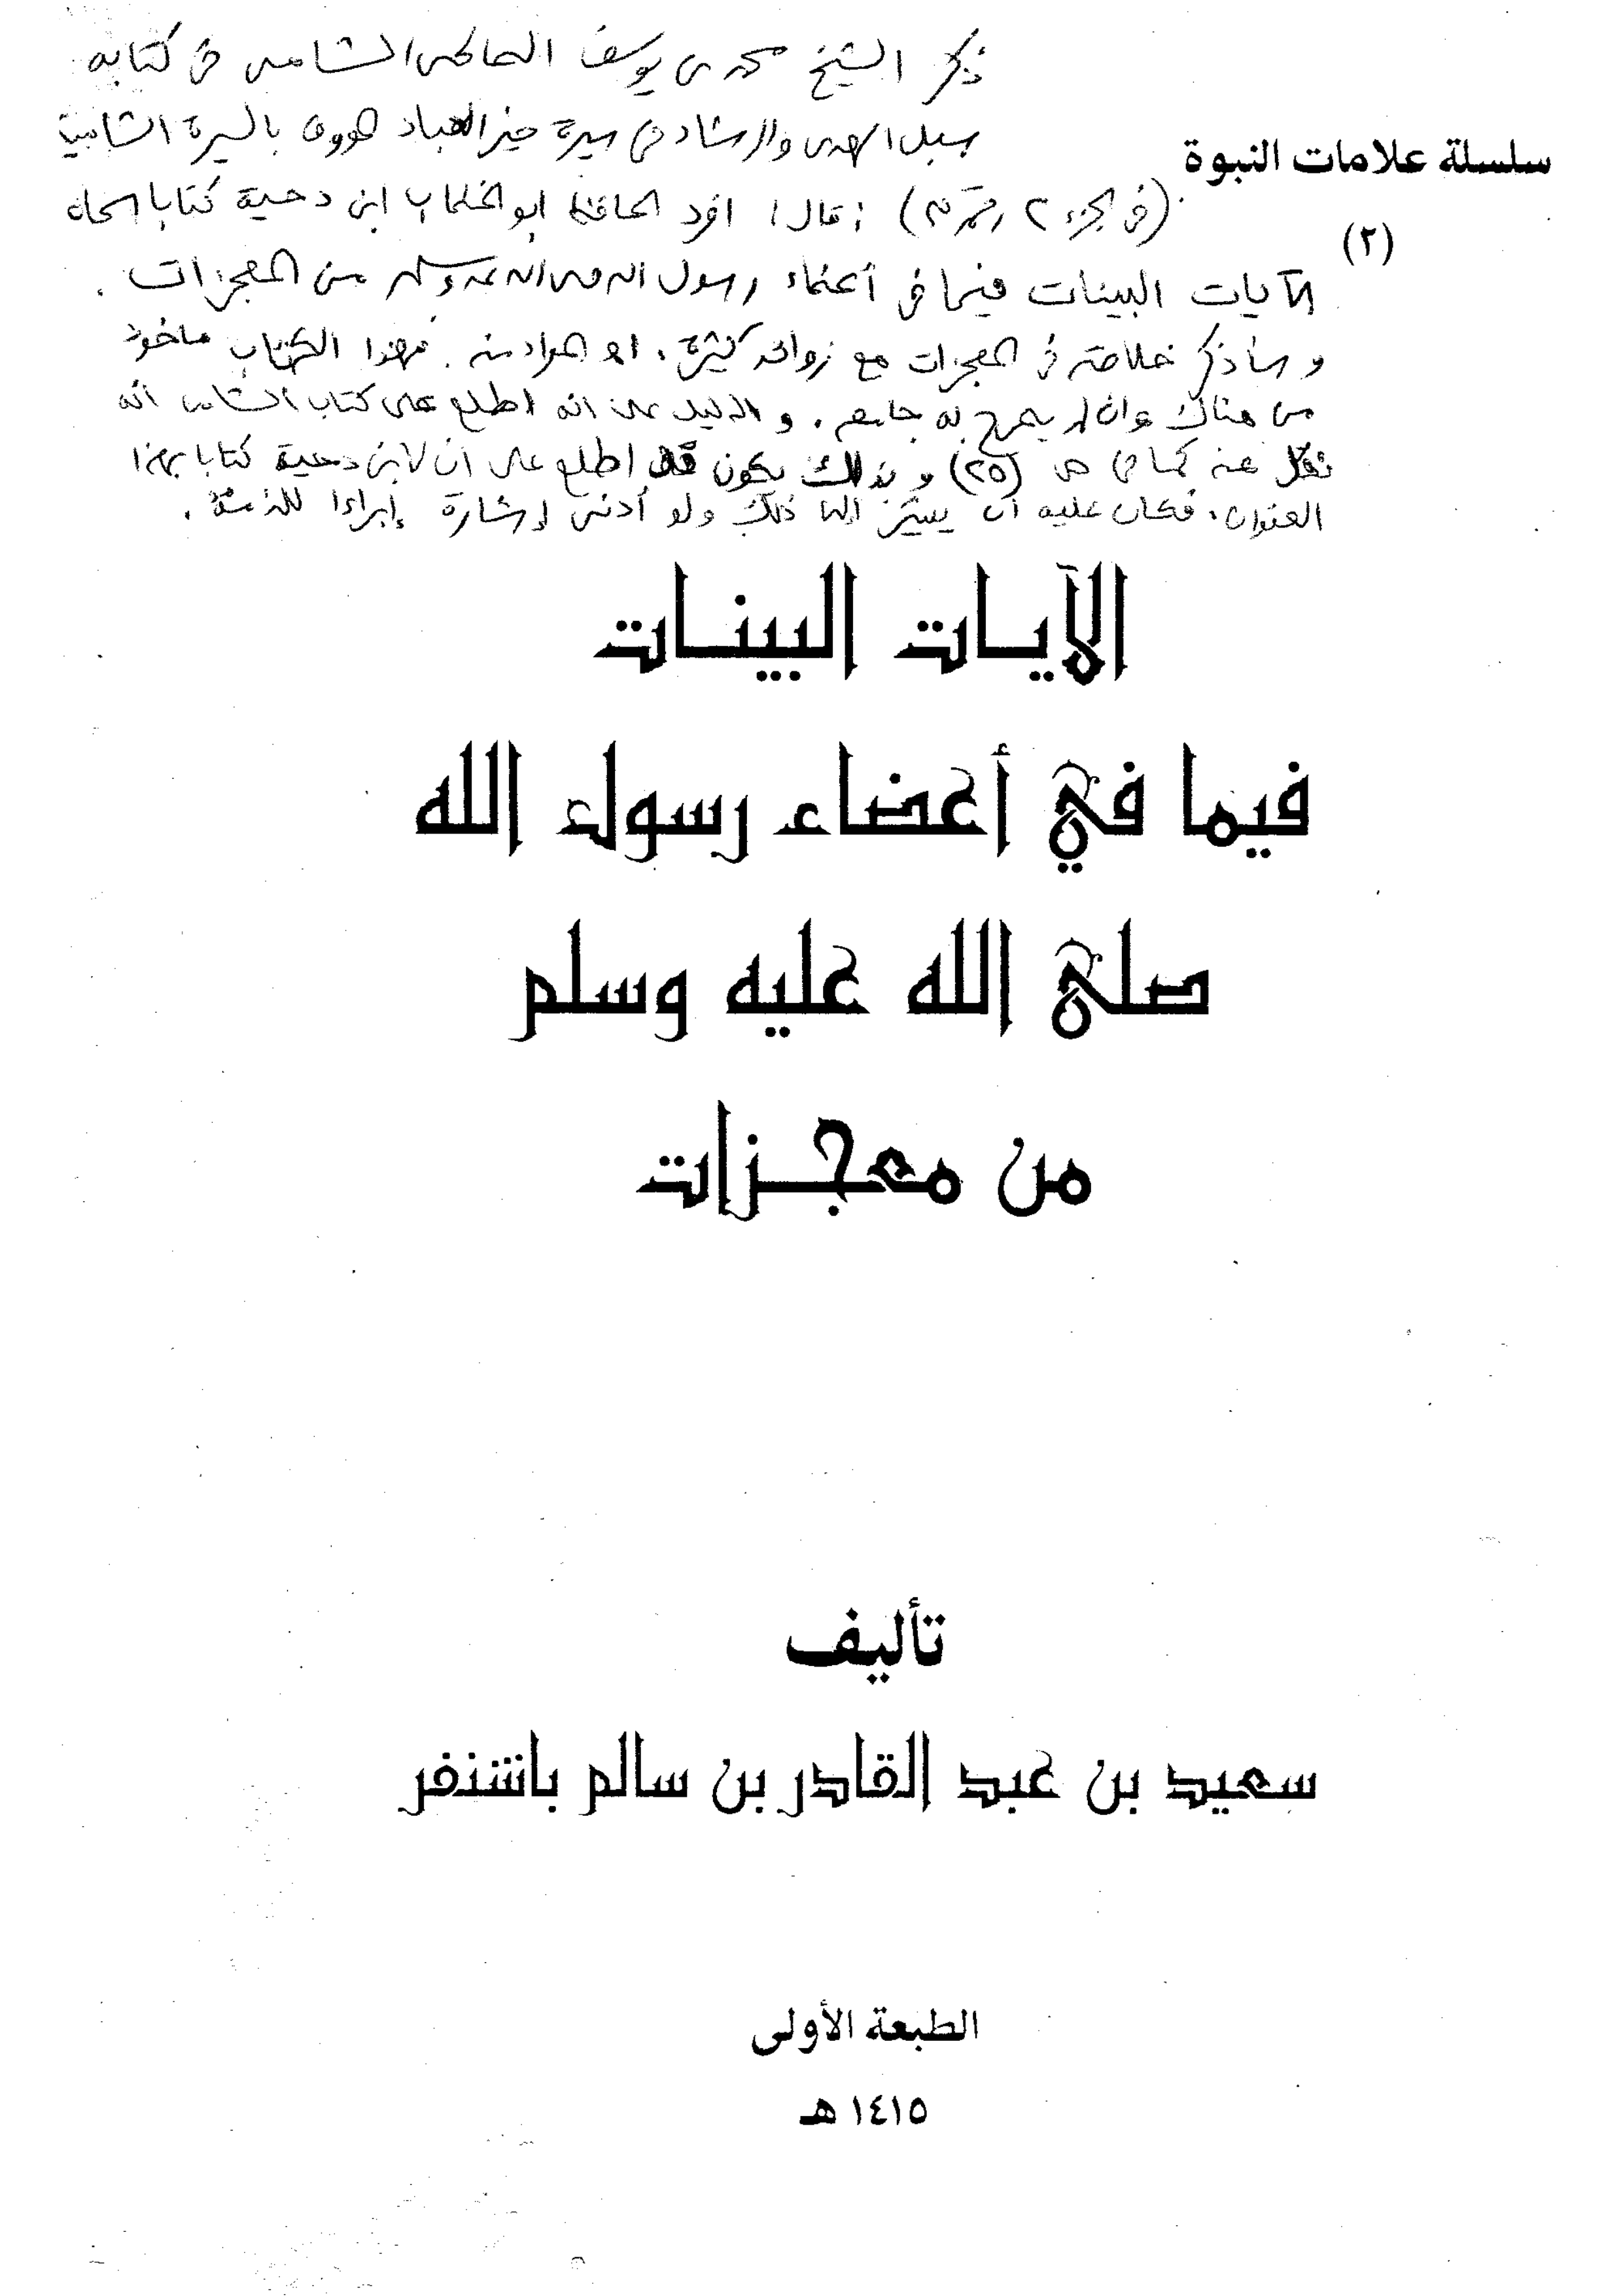 ذكر الشيخ محمد بن يوسف الصالحي الشامي في كتابه
سبل الهدى والرشاد في سيرة خير العباد المعروف بالسيرة الشامية
سلسلة علامات النبوة
(٢)
(في الجزء ٢ : قال : افرد الحافظ ابو الخطاب ابن دحية كتابا اسماه
الآيات البينات فيما في أعضاء رسول الله صلى الله عليه وسلم من المعجزات .
وسأذكر خلاصته في المعجزات مع زوائد كثيرة . اهـ المراد منه . فهذا الكتاب مأخوذ
من هناك وان لم يصرح به جامعه . والدليل على انه اطلع على كتاب الشامي أنه
نقل عنه كما في ص (٢٥) وبذلك يكون قد اطلع على ان لابن دحية كتابا بهذا
العنوان . فكان عليه أن يشير إلى ذلك ولو أدنى إشارة إبراءا للذمة .
الآيات البينات
فيما في أعضاء رسول الله
صلى الله عليه وسلم
من معجزات
تأليف
سعيد بن عبد القادر بن سالم باشنفر
الطبعة الأولى
١٤١٥ هـ